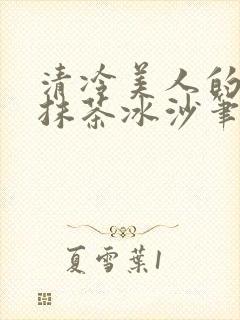 清冷美人的
抹茶冰沙筆
夏雪葉1